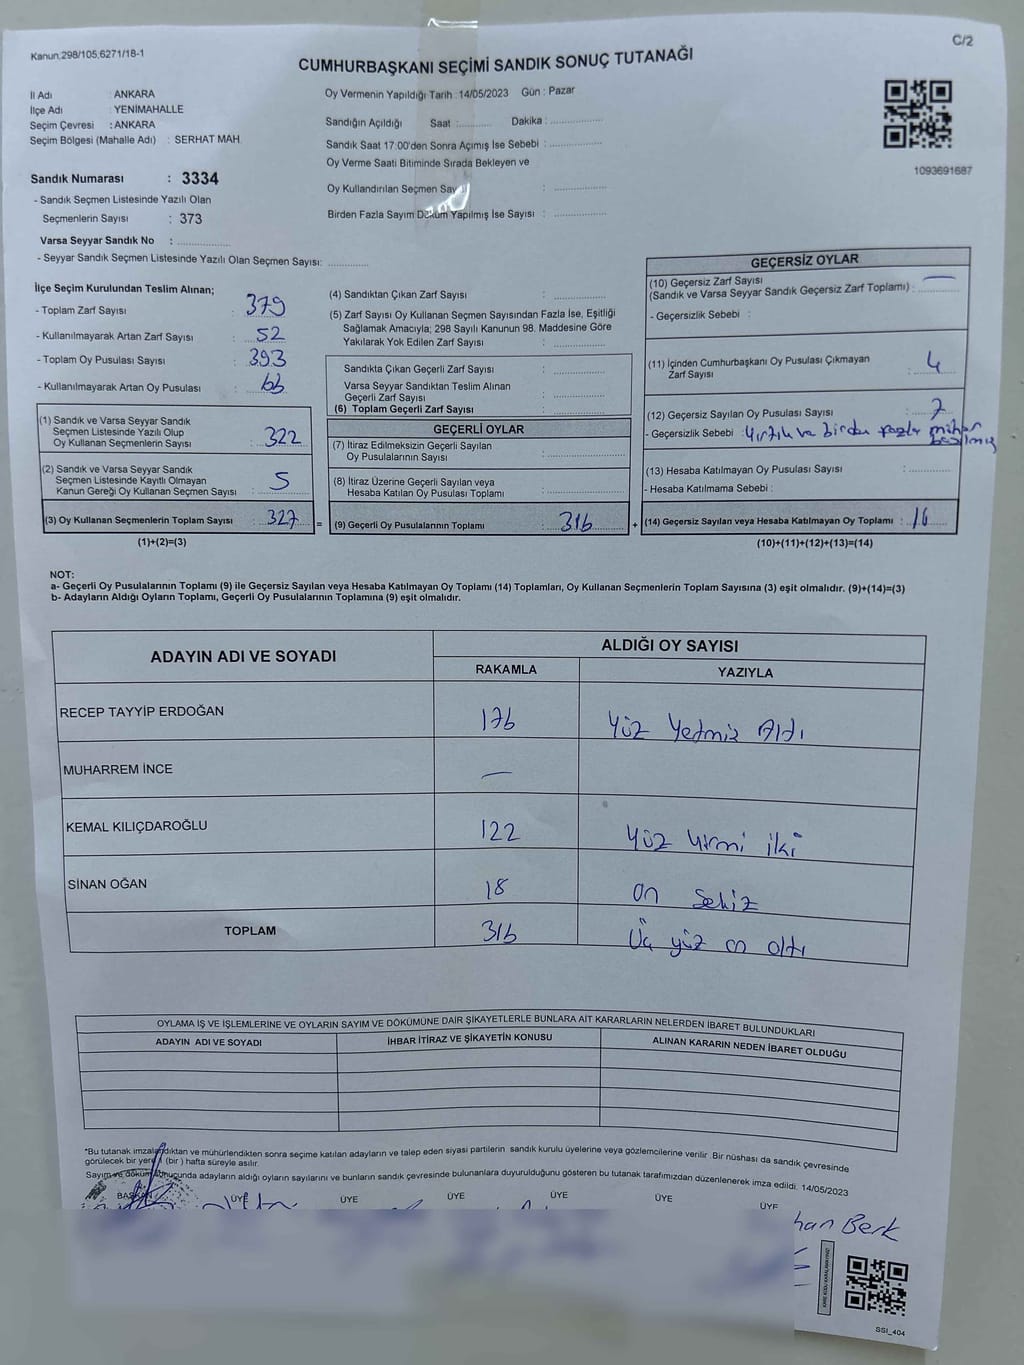 Kanun;298/105,6271/18-1
C/2
CUMHURBAŞKANI SEÇİMİ SANDIK SONUÇ TUTANAĞI
İl Adı : ANKARA
İlçe Adı : YENİMAHALLE
Seçim Çevresi : ANKARA
Seçim Bölgesi (Mahalle Adı) : SERHAT MAH.
Oy Vermenin Yapıldığı Tarih :14/05/2023 Gün : Pazar
Sandığın Açıldığı Saat :............ Dakika :................
Sandık Saat 17:00'den Sonra Açımış İse Sebebi :................
Oy Verme Saati Bitiminde Sırada Bekleyen ve
Oy Kullandırılan Seçmen Say :................
Birden Fazla Sayım Döküm Yapılmış İse Sayısı :................
1093691687
Sandık Numarası : 3334
- Sandık Seçmen Listesinde Yazılı Olan
Seçmenlerin Sayısı : 373
Varsa Seyyar Sandık No :................
- Seyyar Sandık Seçmen Listesinde Yazılı Olan Seçmen Sayısı: ............
İlçe Seçim Kurulundan Teslim Alınan;
- Toplam Zarf Sayısı : 379
- Kullanılmayarak Artan Zarf Sayısı : 52
- Toplam Oy Pusulası Sayısı : 393
- Kullanılmayarak Artan Oy Pusulası : 66
(1) Sandık ve Varsa Seyyar Sandık
Seçmen Listesinde Yazılı Olup
Oy Kullanan Seçmenlerin Sayısı : 322
(2) Sandık ve Varsa Seyyar Sandık
Seçmen Listesinde Kayıtlı Olmayan
Kanun Gereği Oy Kullanan Seçmen Sayısı : 5
(3) Oy Kullanan Seçmenlerin Toplam Sayısı : 327 =
(1)+(2)=(3)
(4) Sandıktan Çıkan Zarf Sayısı :................
(5) Zarf Sayısı Oy Kullanan Seçmen Sayısından Fazla İse, Eşitliği
Sağlamak Amacıyla; 298 Sayılı Kanunun 98. Maddesine Göre
Yakılarak Yok Edilen Zarf Sayısı :................
Sandıkta Çıkan Geçerli Zarf Sayısı :................
Varsa Seyyar Sandıktan Teslim Alınan
Geçerli Zarf Sayısı :................
(6) Toplam Geçerli Zarf Sayısı :................
GEÇERLİ OYLAR
(7) İtiraz Edilmeksizin Geçerli Sayılan
Oy Pusulalarının Sayısı :................
(8) İtiraz Üzerine Geçerli Sayılan veya
Hesaba Katılan Oy Pusulası Toplamı :................
(9) Geçerli Oy Pusulalarının Toplamı : 316 +
GEÇERSİZ OYLAR
(10) Geçersiz Zarf Sayısı —
(Sandık ve Varsa Seyyar Sandık Geçersiz Zarf Toplamı) :............
- Geçersizlik Sebebi :
(11) İçinden Cumhurbaşkanı Oy Pusulası Çıkmayan
Zarf Sayısı : 4
(12) Geçersiz Sayılan Oy Pusulası Sayısı : 7
- Geçersizlik Sebebi : Yırtık ve birden fazla mühür
basılmış
(13) Hesaba Katılmayan Oy Pusulası Sayısı :............
- Hesaba Katılmama Sebebi :
(14) Geçersiz Sayılan veya Hesaba Katılmayan Oy Toplamı : 16
(10)+(11)+(12)+(13)=(14)
NOT:
a- Geçerli Oy Pusulalarının Toplamı (9) ile Geçersiz Sayılan veya Hesaba Katılmayan Oy Toplamı (14) Toplamları, Oy Kullanan Seçmenlerin Toplam Sayısına (3) eşit olmalıdır. (9)+(14)=(3)
b- Adayların Aldığı Oyların Toplamı, Geçerli Oy Pusulalarının Toplamına (9) eşit olmalıdır.
ADAYIN ADI VE SOYADI
ALDIĞI OY SAYISI
RAKAMLA YAZIYLA
RECEP TAYYİP ERDOĞAN 176 Yüz Yetmiş Altı
MUHARREM İNCE —
KEMAL KILIÇDAROĞLU 122 Yüz Yirmi iki
SİNAN OĞAN 18 on Sekiz
TOPLAM 316 Üç yüz on altı
OYLAMA İŞ VE İŞLEMLERİNE VE OYLARIN SAYIM VE DÖKÜMÜNE DAİR ŞİKAYETLERLE BUNLARA AİT KARARLARIN NELERDEN İBARET BULUNDUKLARI
ADAYIN ADI VE SOYADI İHBAR İTİRAZ VE ŞİKAYETİN KONUSU ALINAN KARARIN NEDEN İBARET OLDUĞU
*Bu tutanak imzalandıktan ve mühürlendikten sonra seçime katılan adayların ve talep eden siyasi partilerin sandık kurulu üyelerine veya gözlemcilerine verilir .Bir nüshası da sandık çevresinde
görülecek bir yere 1 (bir ) hafta süreyle asılır.
Sayım ve döküm sonucunda adayların aldığı oyların sayılarını ve bunların sandık çevresinde bulunanlara duyurulduğunu gösteren bu tutanak tarafımızdan düzenlenerek imza edildi. 14/05/2023
BAŞKAN ÜYE ÜYE ÜYE ÜYE ÜYE ÜYE
han Berk
SSI_404